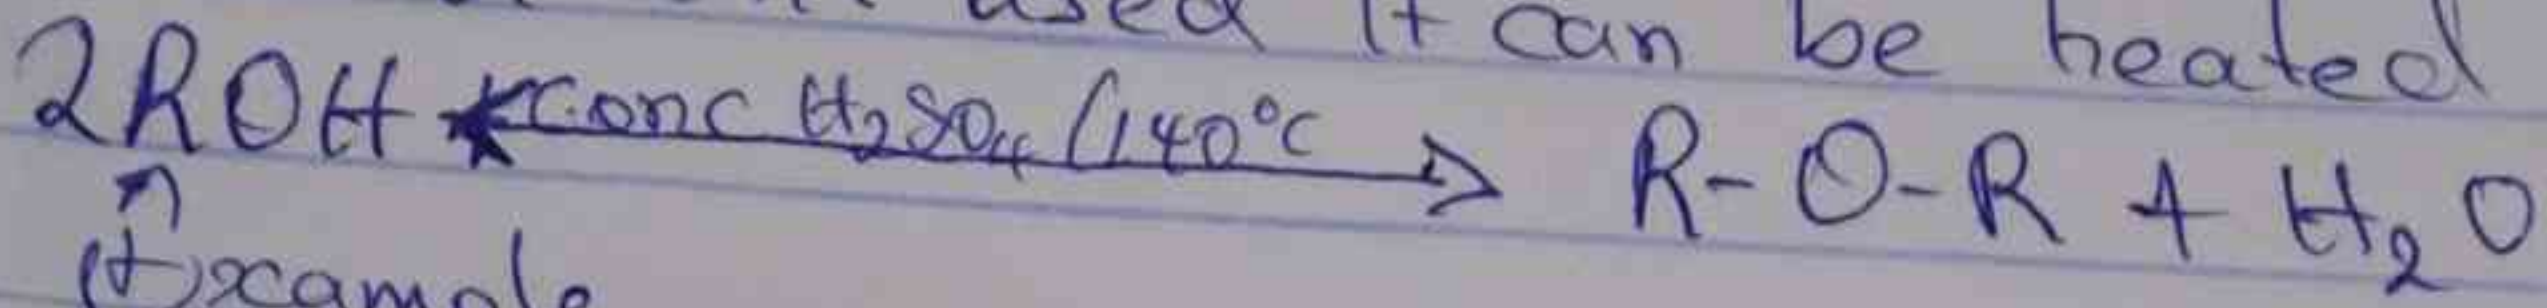 used It can be heated
2ROH <conc H₂SO₄/140°C> R-O-R + H₂O
Example